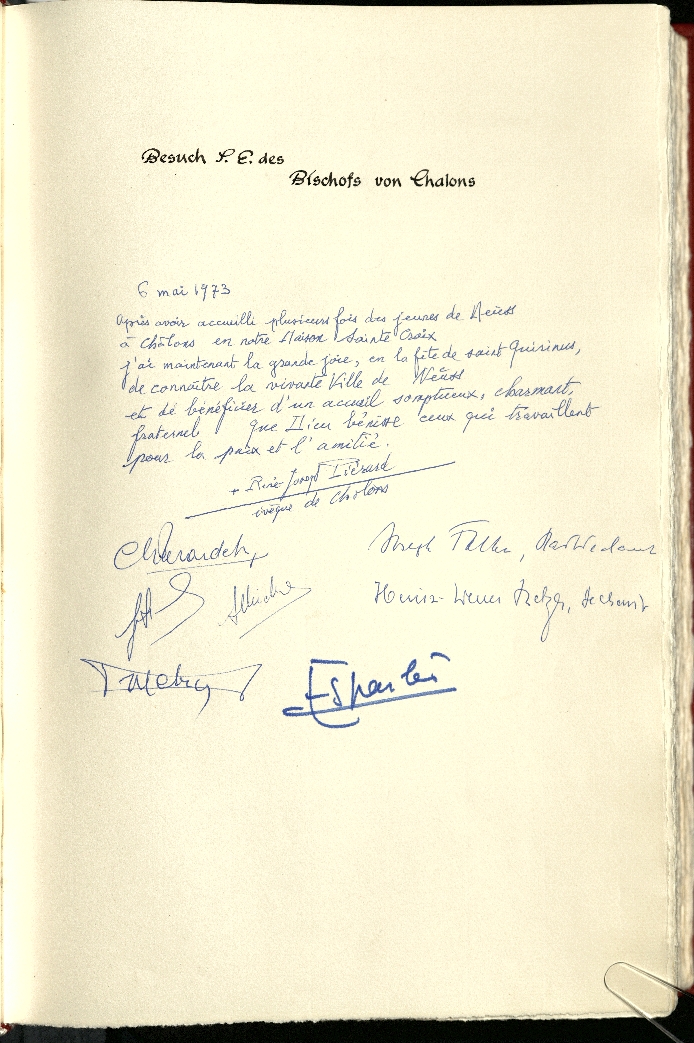 Besuch S. E. des
Bischofs von Chalons
6 mai 1973
Après avoir accueilli plusieurs fois des jeunes de Neuss
à Châlons en notre Maison Sainte Croix
j'ai maintenant la grande joie, en la fête de saint Quirinus,
de connaître la vivante Ville de Neuss
et de bénéficier d'un accueil somptueux, charmant,
fraternel que Dieu bénisse ceux qui travaillent
pour la paix et l'amitié.
+ René Joseph Piérard
évêque de Châlons
Joseph
Heinz-Werner